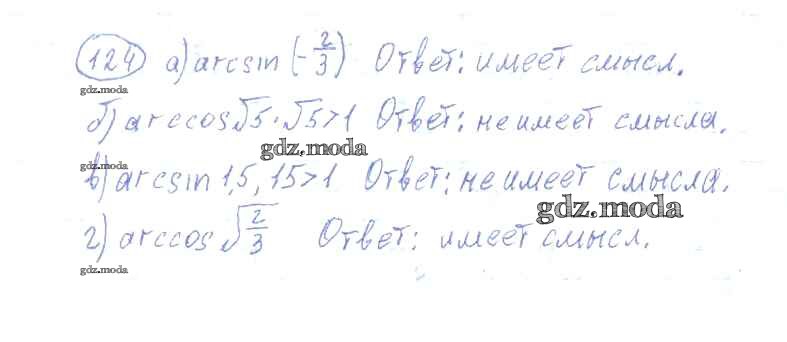 124 а) arcsin (-2/3) Ответ: имеет смысл.
gdz.moda
б) arccos√5; √5>1 Ответ: не имеет смысла.
gdz.moda
gdz.moda
в) arcsin 1,5, 15>1 Ответ: не имеет смысла.
gdz.moda
г) arccos√2/3 Ответ: имеет смысл.
gdz.moda